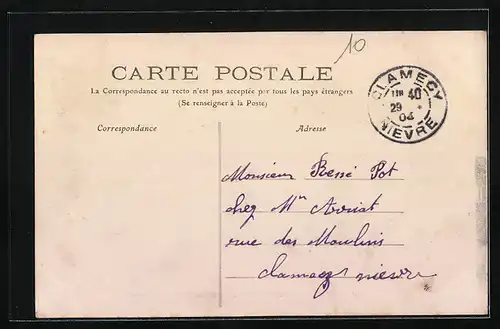 10
CARTE POSTALE
La Correspondance au recto n'est pas acceptée par tous les pays étrangers
(Se renseigner à la Poste)
CLAMECY
40
29
04
NIEVRE
Correspondance
Adresse
Monsieur René Pot
chez Mn
rue des Moulins
Clamecy nievre